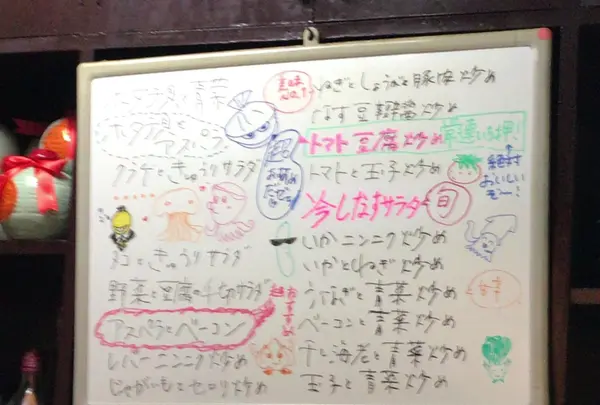 ホタテ貝と青菜
ホタテ貝と
アスパラ
クラゲときゅうりサラダ
タコときゅうりサラダ
野菜と豆腐の千切サラダ
アスパラとベーコン
おすすめ
レバーニンニク炒め
じゃがいもとセロリ炒め
意味
No.1
超
お薦め
だぜ
ねぎとしょうがと豚肉炒め
なす豆瓣醤炒め
トマト豆腐炒め
常連いち押し!
トマトと玉子炒め
絶対
おいしい
ぞー!
冷しなすサラダ
旬
いかニンニク炒め
いかとねぎ炒め
うなぎと青菜炒め
ベーコンと青菜炒め
干し海老と青菜炒め
玉子と青菜炒め